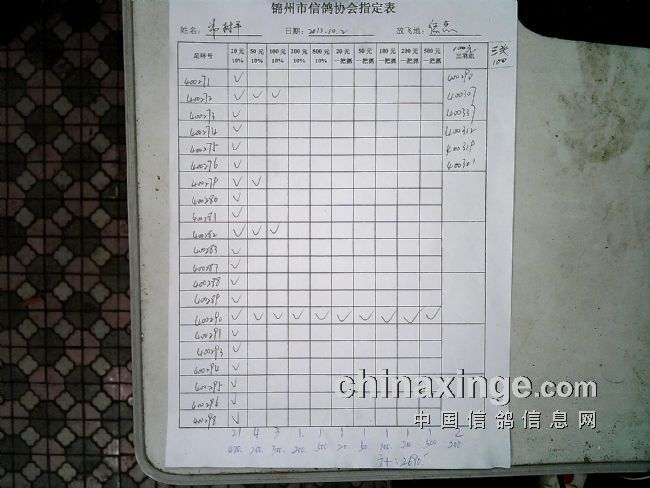 锦州市信鸽协会指定表
姓名： 日期：2013.10.2 放飞地：
足环号 20元10% 50元10% 100元10% 200元10% 500元10% 20元一把抓 50元一把抓 100元一把抓 200元一把抓 500元一把抓 100元 三关100
400271 ✓ 400290
400272 ✓ ✓ ✓ 400307
400273 ✓ 400337
400274 ✓ 400312
400275 ✓ 400319
400276 ✓ 400301
400279 ✓ ✓
400280 ✓
400281 ✓
400282 ✓ ✓ ✓
400283 ✓
400287 ✓
400288 ✓
400289 ✓
400290 ✓ ✓ ✓ ✓ ✓ ✓ ✓ ✓ ✓ ✓
400291 ✓
400293 ✓
400294 ✓
400295 ✓
400296 ✓
400298 ✓
21 4 3 1 1 1 1 1 1 1 2
420 200 300 200 500 20 50 100 200 500 200
计：2690
chinaxinge.com
中国信鸽信息网